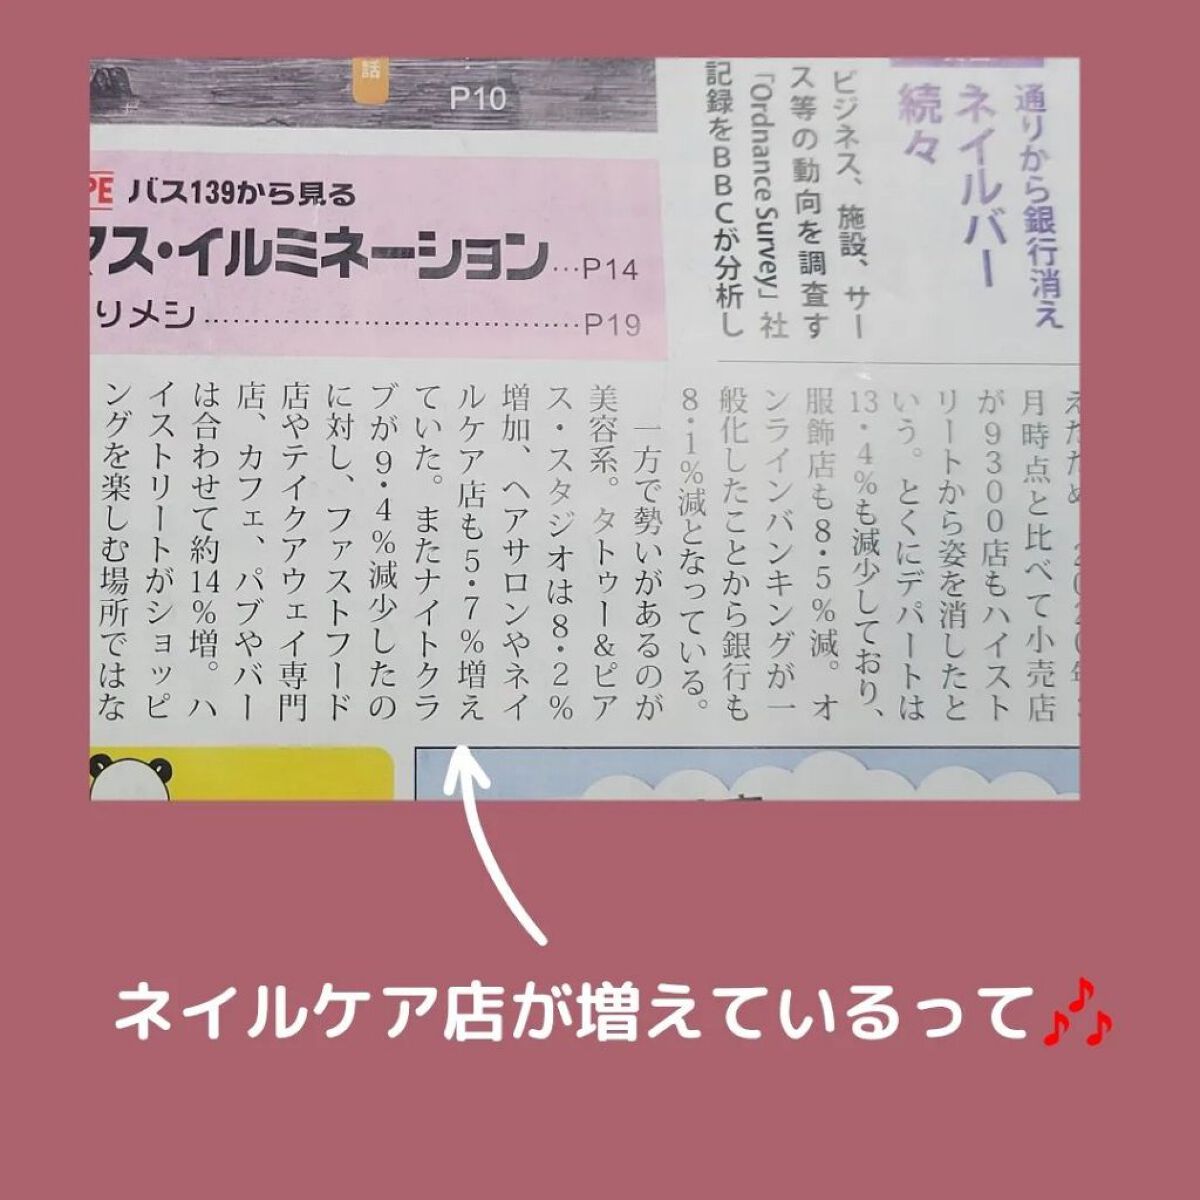 話
P10
PE バス139から見る
マス・イルミネーション…P14
りメシ……P19
通りから銀行消え
ネイルバー
続々
ビジネス、施設、サー
ス等の動向を調査す
「Ordnance Survey」社
記録をBBCが分析し
月時点と比べて小売店
が9300店もハイスト
リートから姿を消したと
いう。とくにデパートは
13・4%も減少しており、
服飾店も8・5%減。オ
ンラインバンキングが一
般化したことから銀行も
8・1%減となっている。
一方で勢いがあるのが
美容系。タトゥー&ピア
ス・スタジオは8・2%
増加、ヘアサロンやネイ
ルケア店も5・7%増え
ていた。またナイトクラ
ブが9・4%減少したの
に対し、ファストフード
店やテイクアウェイ専門
店、カフェ、パブやバー
は合わせて約14%増。ハ
イストリートがショッピ
ングを楽しむ場所ではな
ネイルケア店が増えているって